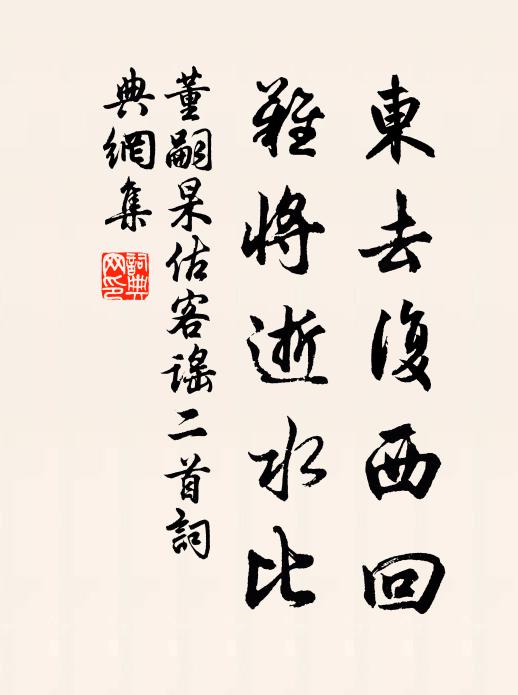 東去復西回
難將逝水比
董嗣杲估客謠二首詞
典網集
詞典網印